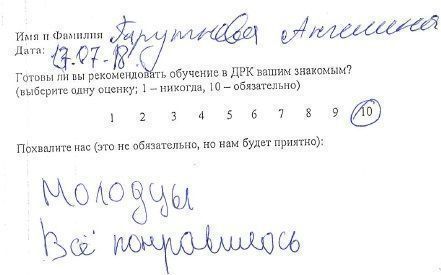 Имя и Фамилия Парутнева Ангелина
Дата: 17.07.18.
Готовы ли вы рекомендовать обучение в ДРК вашим знакомым?
(выберите одну оценку; 1 – никогда, 10 – обязательно)
1 2 3 4 5 6 7 8 9 10
Похвалите нас (это не обязательно, но нам будет приятно):
Молодцы
Всё понравилось